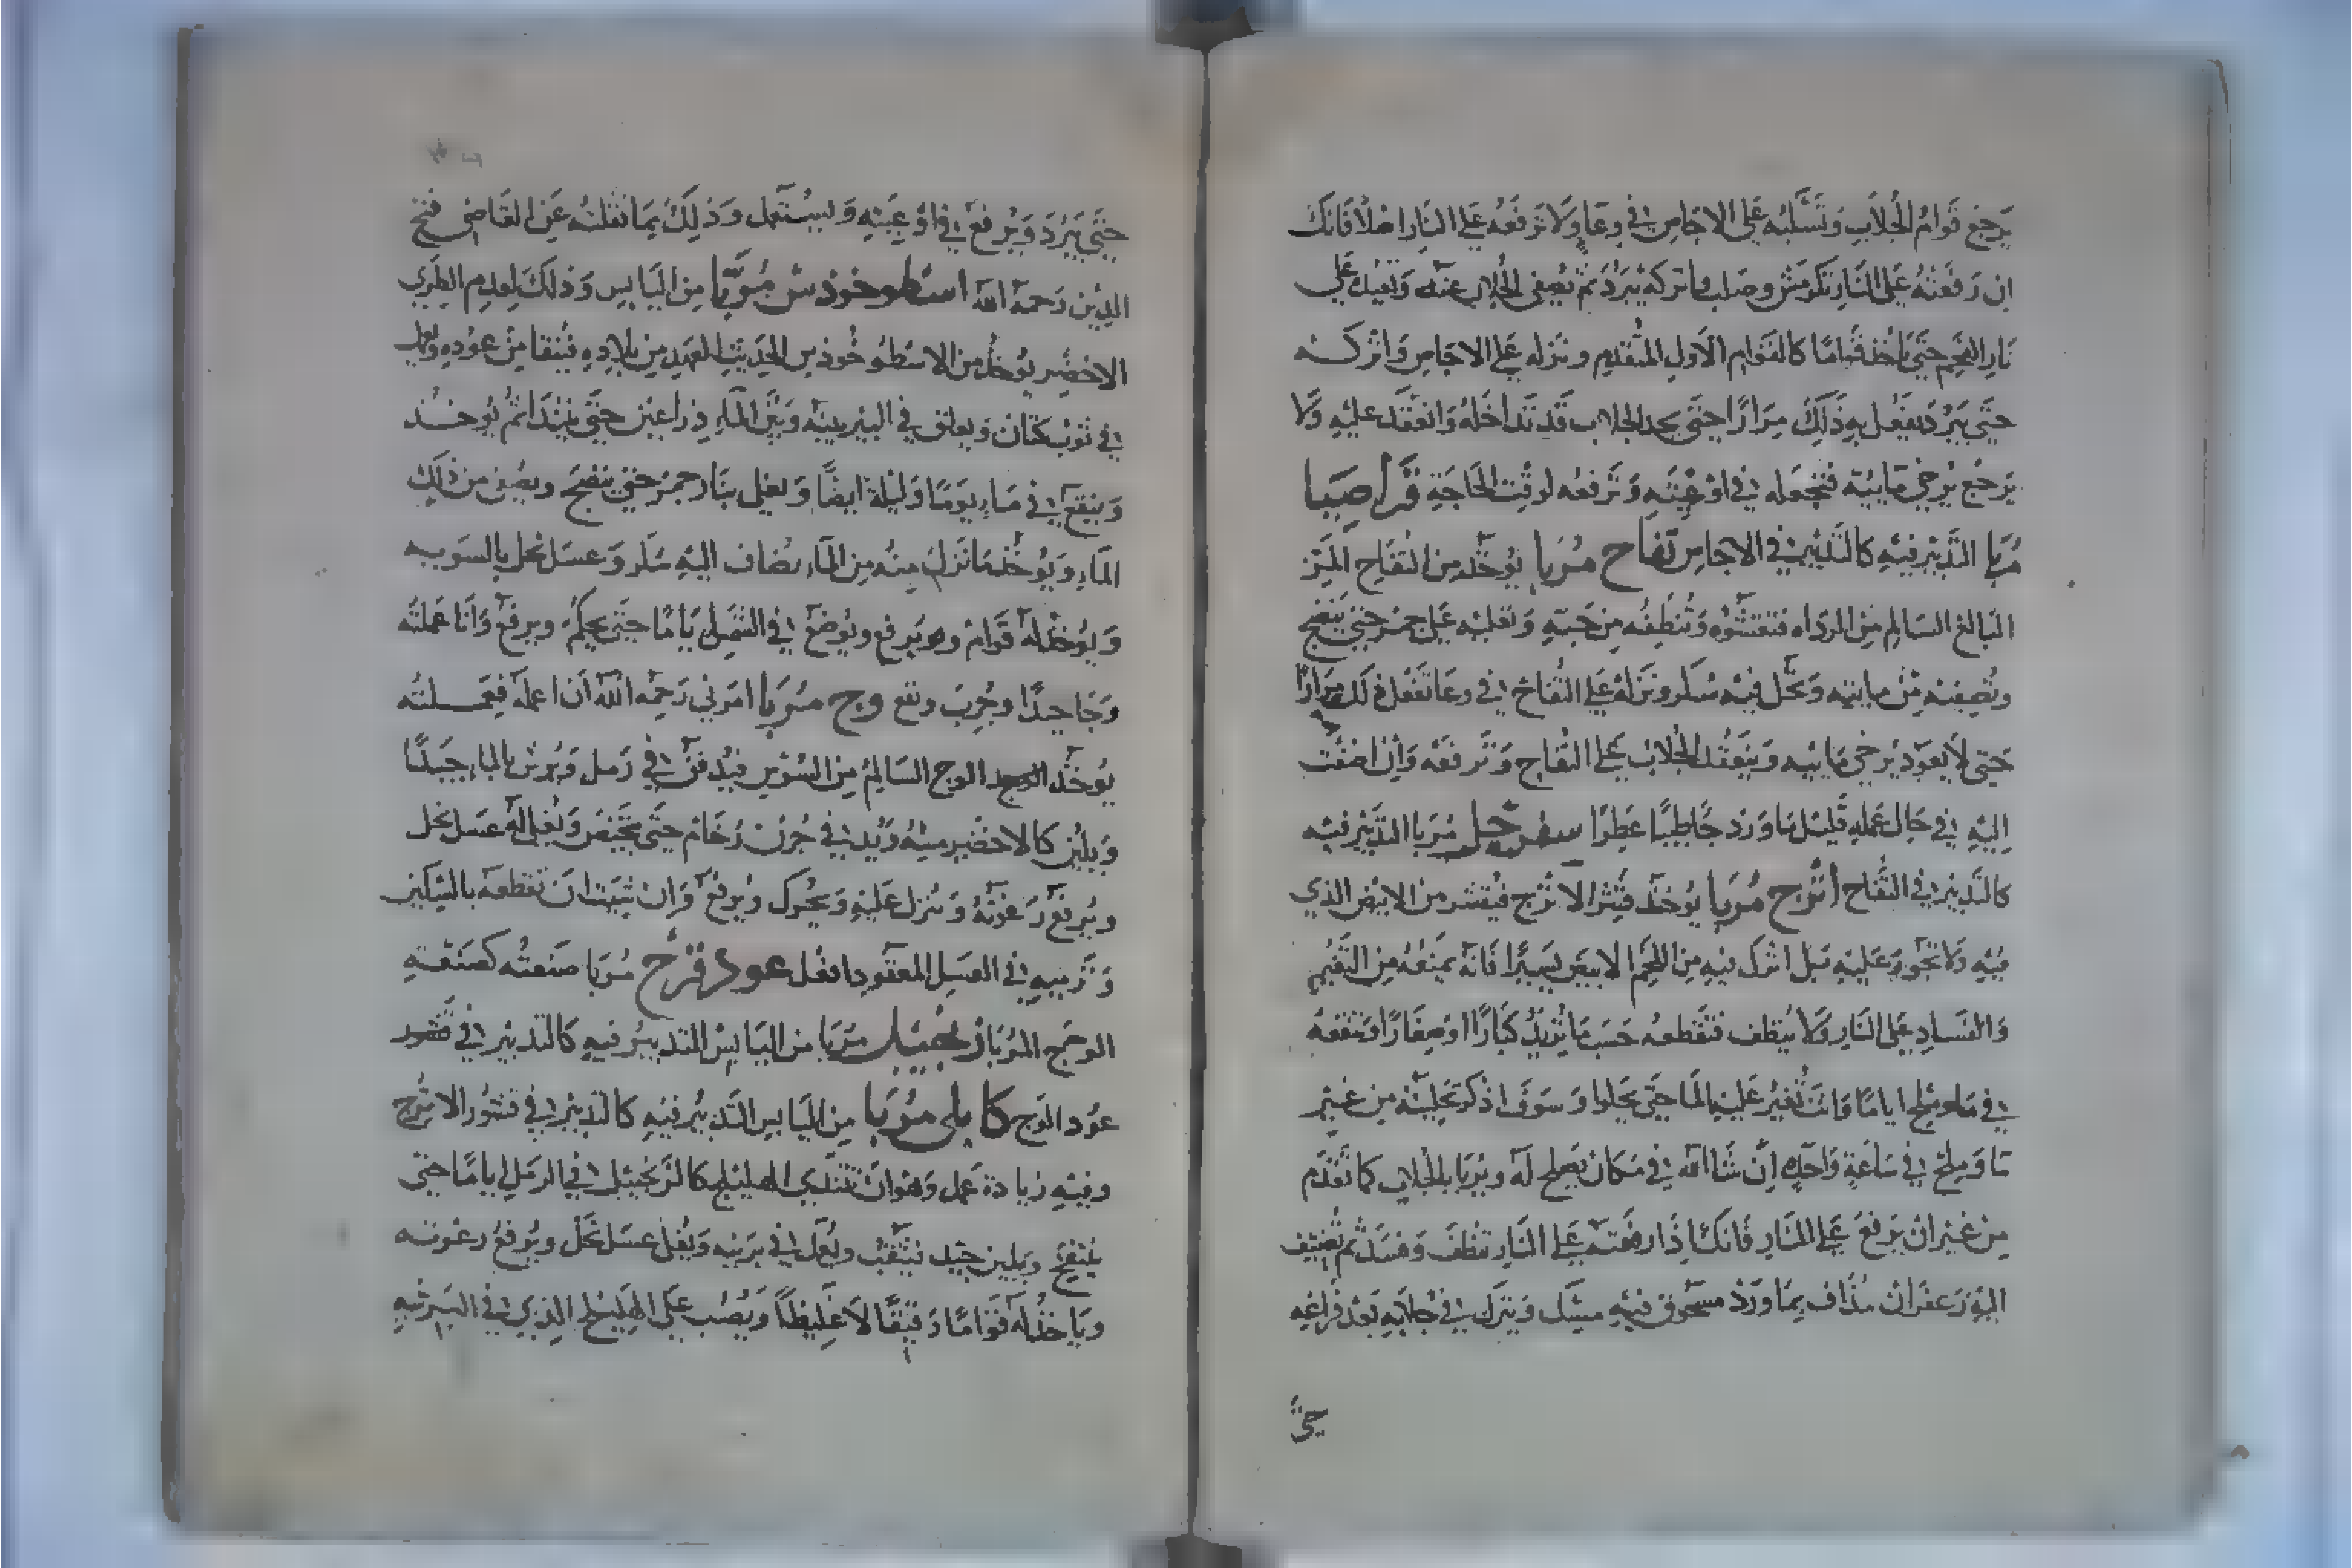 يرجع قوام الجلاب وتسكبه على الاجاص في وعا ولا ترفعه على النار اصلا فانك
ان رفعته على النار تكرمش وصلب واتركه يبرد ثم تصفى الجلاب عنه وتعيده على
نار الفحم حتى ياخذ قواما كالقوام الاول المتقدم وتنزله على الاجاص واتركه
حتى يبرد تفعل به ذلك مرارا حتى يجد الجلاب قد تداخله وانعقد عليه ولا
يرجع يرخي مائيته فتجعله في اوعيته وترفعه لوقت الحاجة قراصيا
مربا التدبير فيه كالتدبير في الاجاص تفاح مربا يوخذ من التفاح المز
البالغ السالم من الرداه فتقشره وتنظفه من حبه وتغليه على جمر حتى ينضج
وتصفيه من مايته وتحل فيه سكر وتنزله على التفاح في وعا تفعل ذلك مرارا
حتى لا يعود يرخي مايته وينعقد الجلاب على التفاح وترفعه وان اضفت
اليه في حال عمله قليل ماورد جا طيبا عطرا سفرجل مربا التدبير فيه
كالتدبير في التفاح أترج مربا يوخذ قشر الاترج فيقشر من الابيض الذي
فيه ولا تجور عليه بل اترك فيه من اللحم الابيض يسيرا فانه يمنعه من
والفساد على النار ولا ينظف فتقطعه حسب ما تريد كبارا او صغارا وتنقعه
في ماء وملح اياما وانت تغير عليه الما حتى يحلوا وسوف اذكر تحليته من غير
ما وملح في ساعة واحده ان شا الله في مكان يصلح له ويربا بالجلاب كما تقدم
من غير ان يرفع على النار فانك اذا رفعته على النار تنظف وفسد ثم تضيف
اليه زعفران مذاف بماورد مسحوق فيه مسك ويترك في جلابه بعد فراغه
حتى
حتى يبرد ويرفع في اوعيته ويستعمل وذلك مما نقلته عن القاضي فتح
الدين رحمه الله اسطوخودس مربا من اليابس وذلك لعدم الطري
الاخضر يوخذ من الاسطوخودس الحديث العهد من بلاده فينقا من عوده ويجعل
في ثوب كتان ويعلق في البير بينه وبين الماء ذراعين حتى يتندا ثم يوخذ
وينقع في ماء يوما وليلة ايضا ويغلى بنار جمر حتى ينضج ويصفى من ذلك
الماء ويوخذ ما نزل منه من الماء يضاف اليه سكر وعسل نحل بالسويه
ويوخذ له قوام ويرفع ويوضع في الشمس اياما حتى يحكم ويرفع وانا عملته
وجا جيدا وجرب ونفع وج مربا امرني رحمه الله ان اعمله فعملته
يوخذ الوج السالم من السوس فيدفن في رمل ويرش بالماء جيدا
ويلين كالاخضر ميه ويدق في جرن رخام حتى ويغلى له عسل نحل
ويرفع رغوته وينزل عليه ويحرك ويرفع وان شيت ان تقطعه بالسكين
وتربيه في العسل المعقود افعل عود قرح مربا صنعته كصنعة
الوج المربا زنجبيل مربا من اليابس التدبير فيه كالتدبير في
عود الوج كابلي مربا من اليابس التدبير فيه كالتدبير في قشور الاترج
وفيه زيادة عمل وهو ان تندي الهليلج كالزنجبيل في الرمل اياما حتى
ينتفخ ويلين جيد فيثقب ويجعل في برنيه ويغلى عسل نحل ويرفع رغوته
وياخذ له قواما رقيقا لا غليظا ويصب على الهليلج الذي في البرنيه